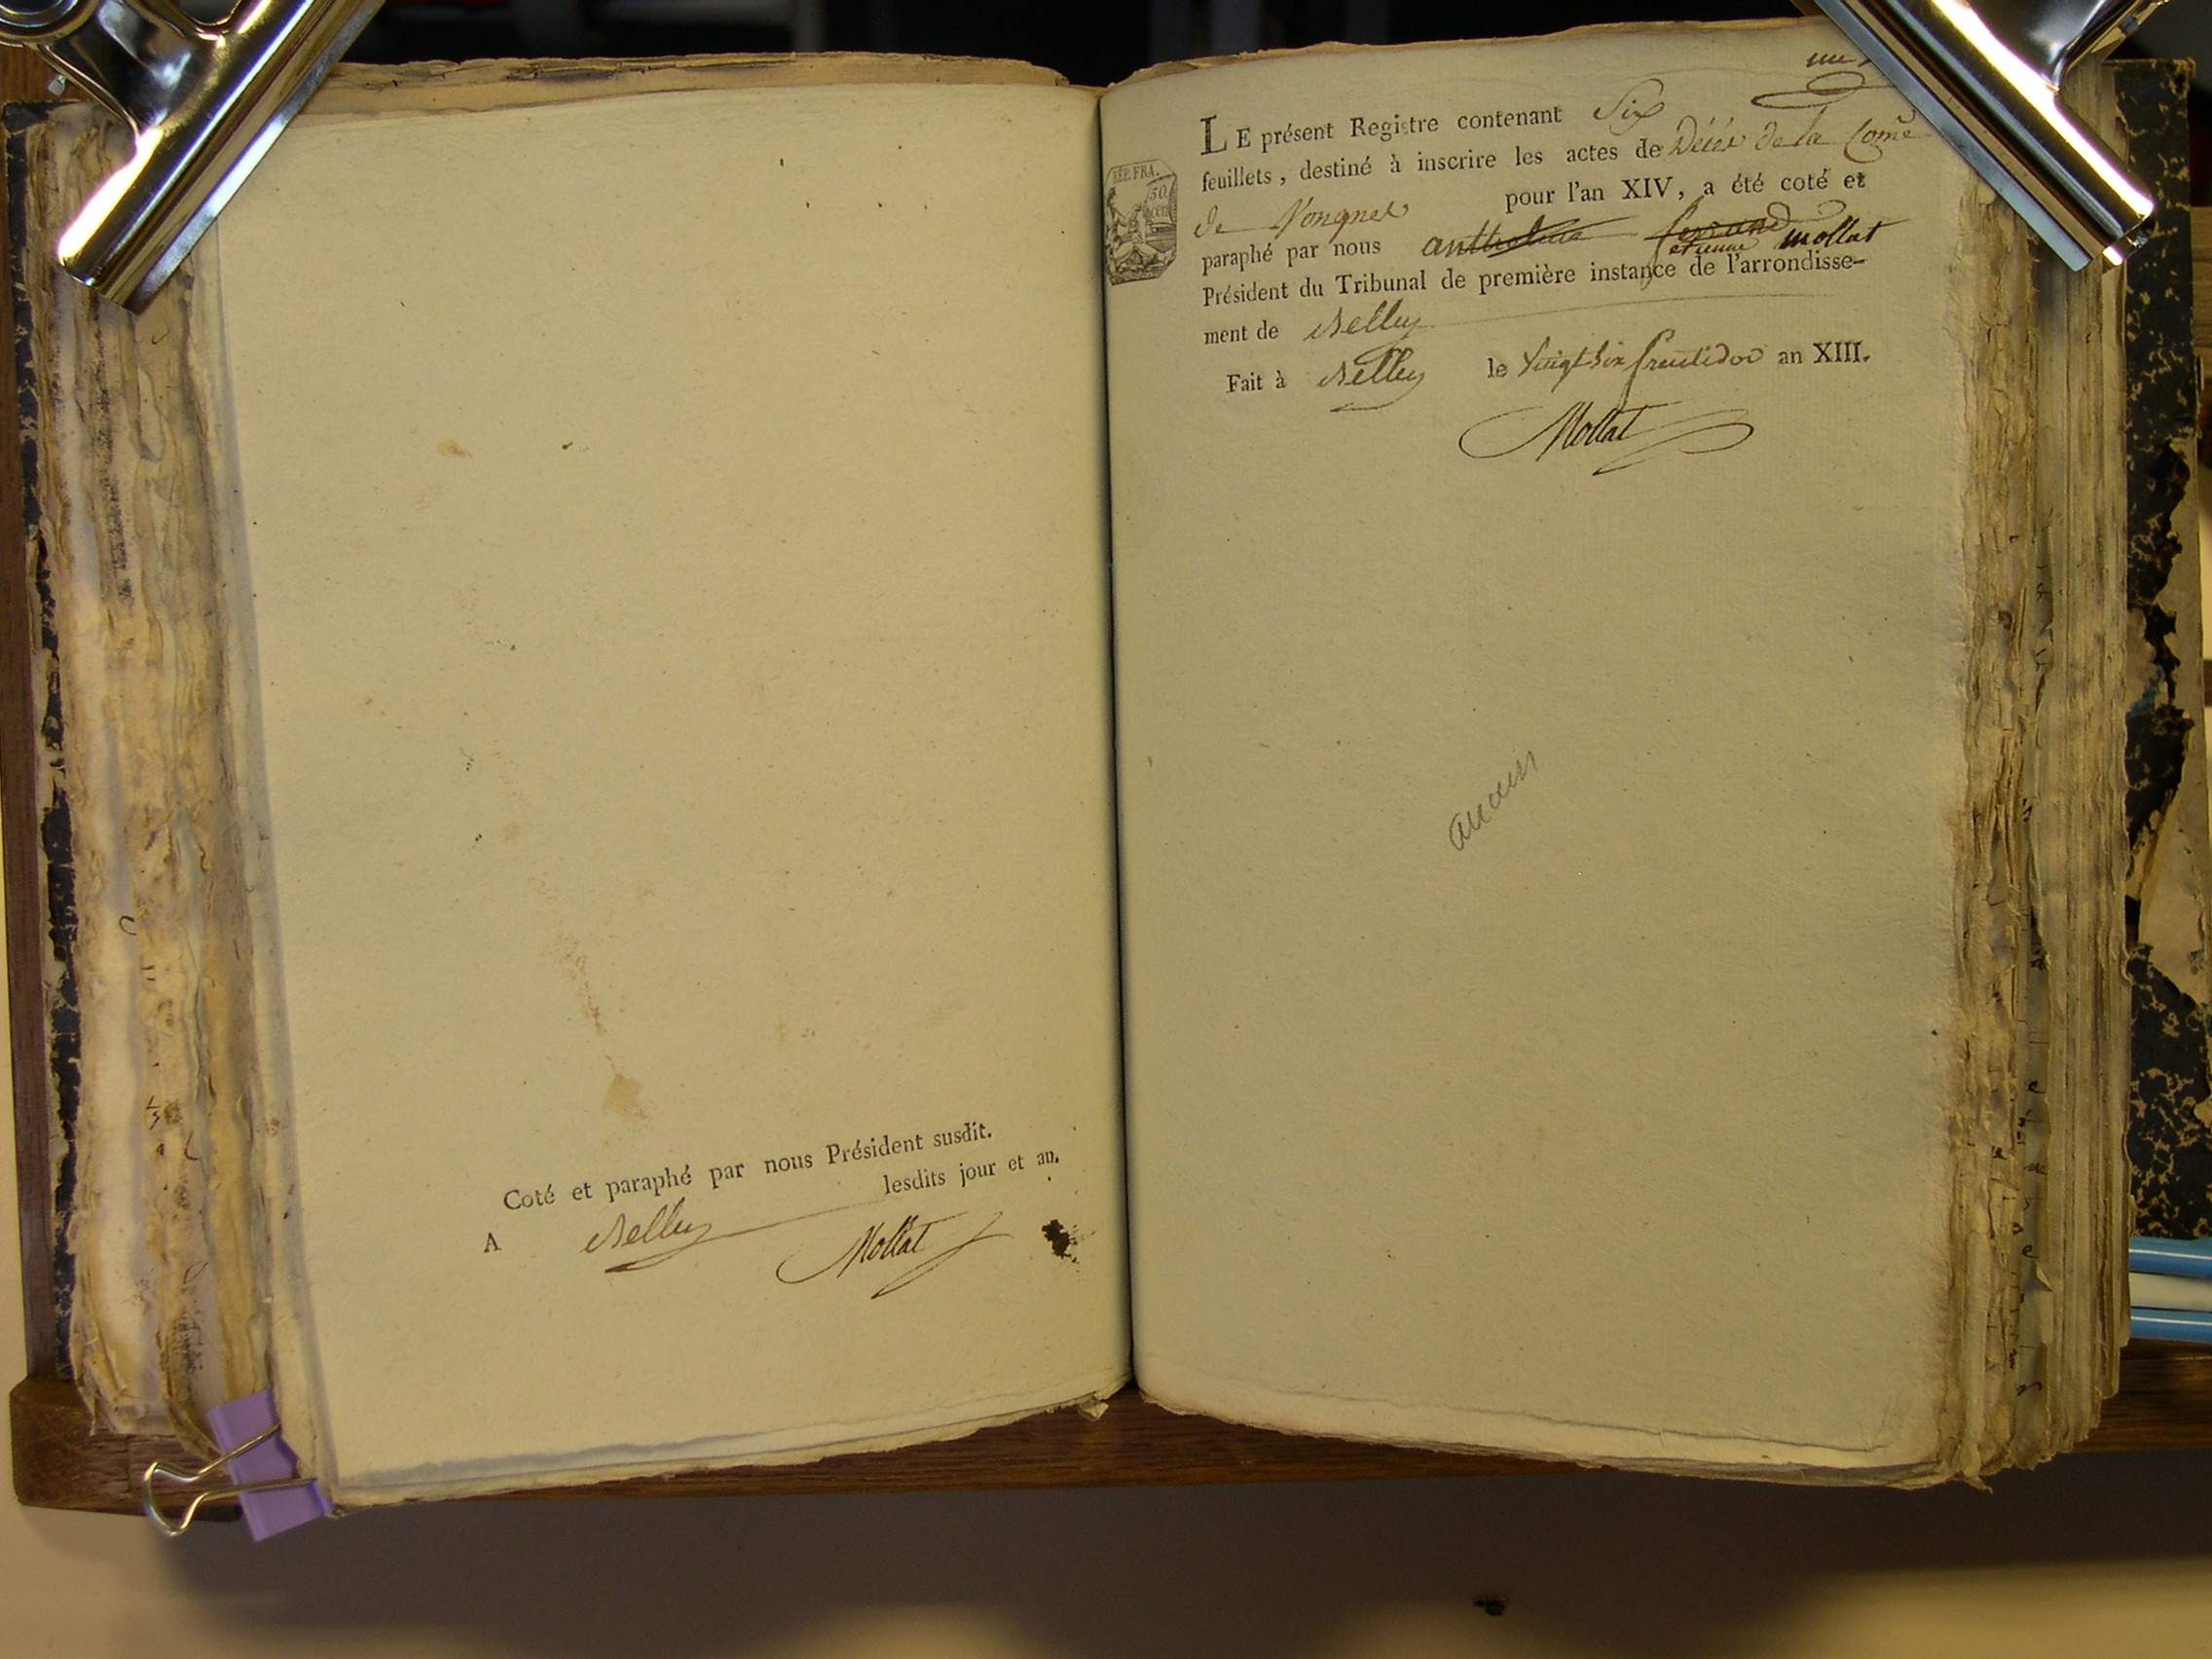 Coté et paraphé par nous Président susdit.
A Belley lesdits jour et an.
Mollat
LE présent Registre contenant Six
feuillets, destiné à inscrire les actes de Décés de la Come
de Vongnes pour l'an XIV, a été coté et
paraphé par nous anthelme ferrand etienne mollat
Président du Tribunal de première instance de l'arrondisse-
ment de Belley
Fait à Belley le Vingt Six fructidor an XIII.
Mollat
REP. FRA.
50
cen
aucun